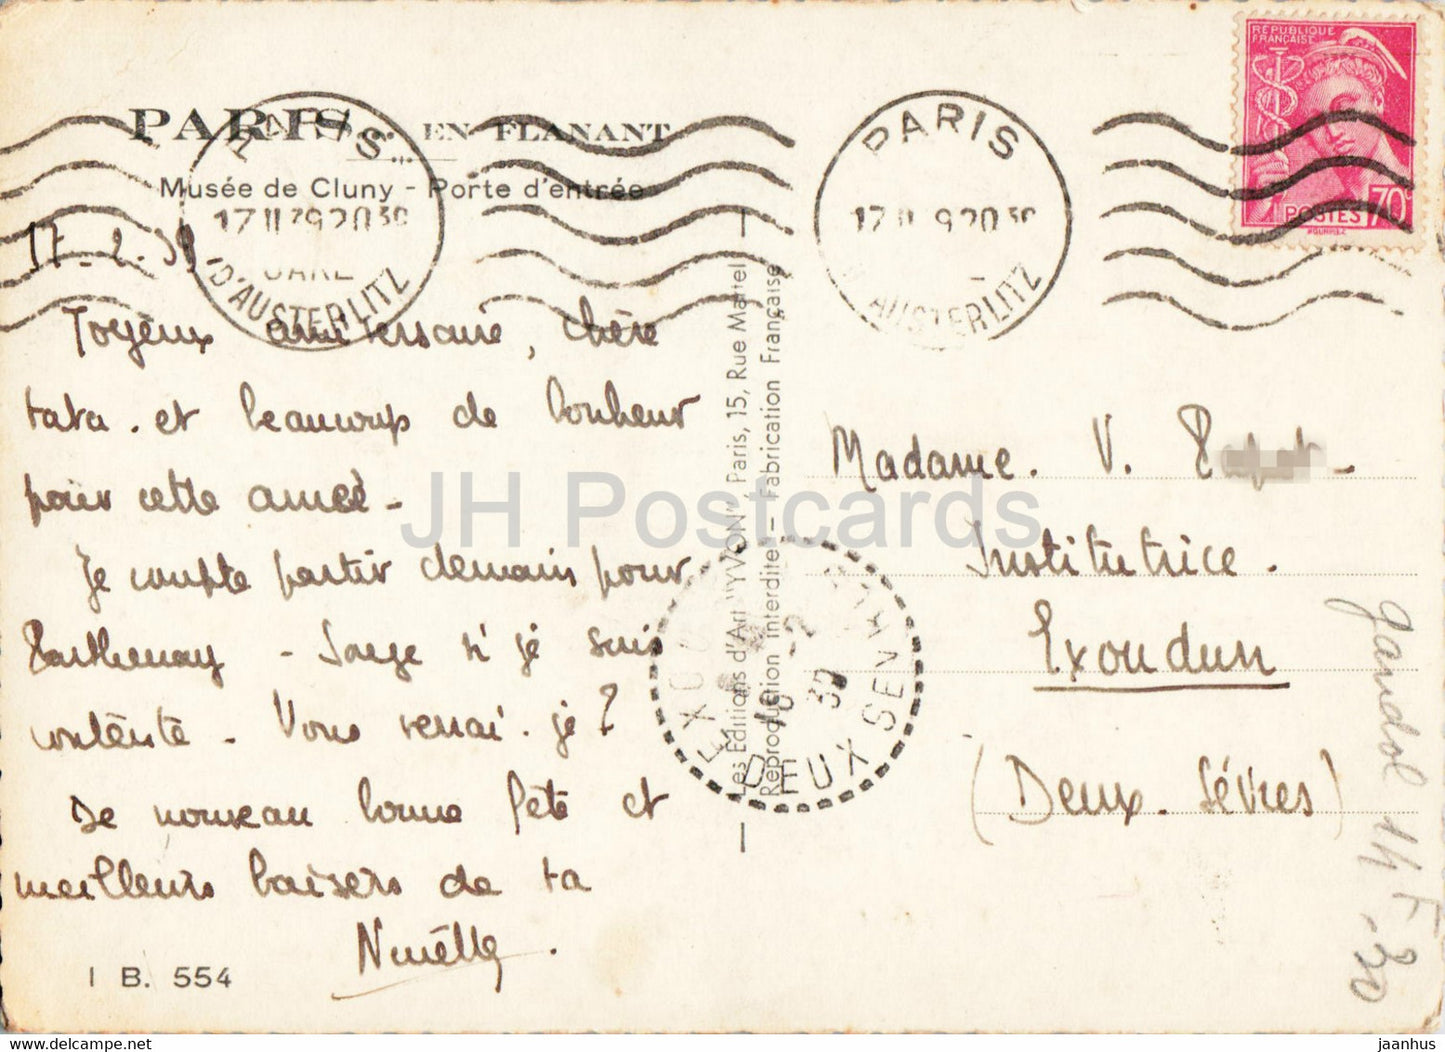 PARIS... EN FLANANT
Musée de Cluny - Porte d'entrée
17-2.39-
Joyeux anniversaire, chère
tata. et beaucoup de bonheur
pour cette année -
Je compte partir demain pour
Parthenay - Songe si je suis
contente - Vous verrai-je ?
De nouveau bonne fête et
meilleurs baisers de ta
I B. 554
PARIS
GARE
17 II 39 20 30
D'AUSTERLITZ
PARIS
17 II 9 20 30
AUSTERLITZ
REPUBLIQUE
FRANÇAISE
POSTES 70c
Les Editions d'Art "YVON", Paris, 15, Rue Martel
Reproduction interdite - Fabrication Française
Madame. V.
Institutrice.
Exoudun
(Deux-Sèvres)
EXOUDUN
18 -2
39
DEUX SEVRES
14 F
JH Postcards
www.jhpostcards.com
jaanhus